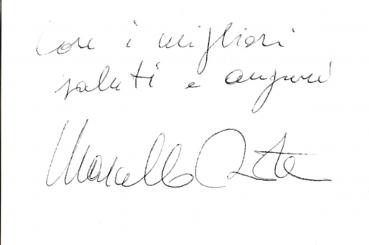 Con i migliori
saluti e auguri
Marcello